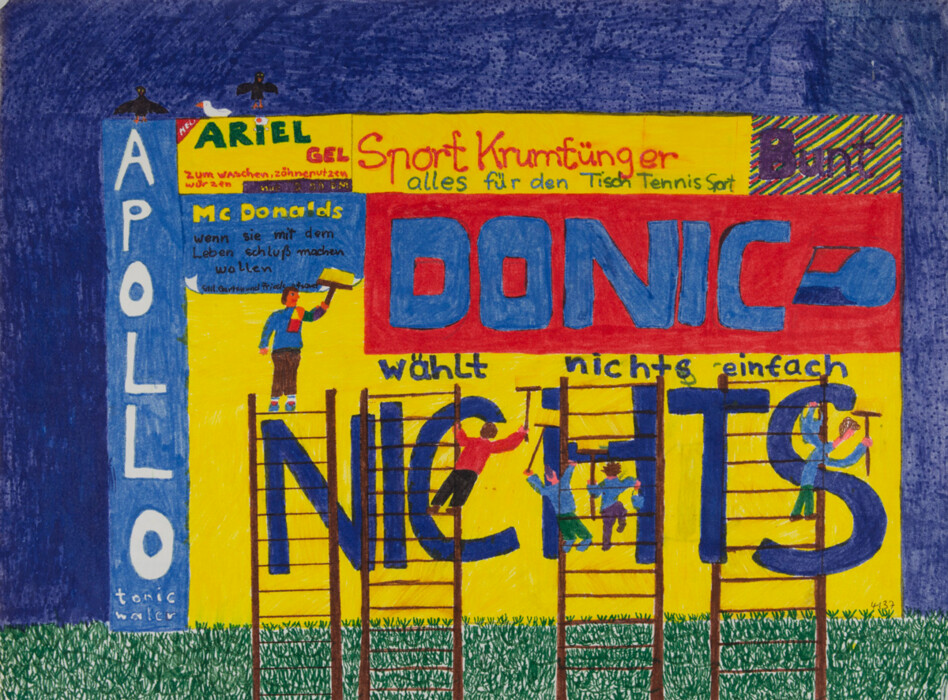 APOLLO
tonic
water
NEU
ARiEL
GEL
zum waschen, zähneputzen
würzen
Sport Krumfünger
alles für den Tisch Tennis Sport
Bunt
Mc Donalds
wenn sie mit dem
Leben schluß machen
wollen
DONIC
wählt nichts einfach
NICHTS